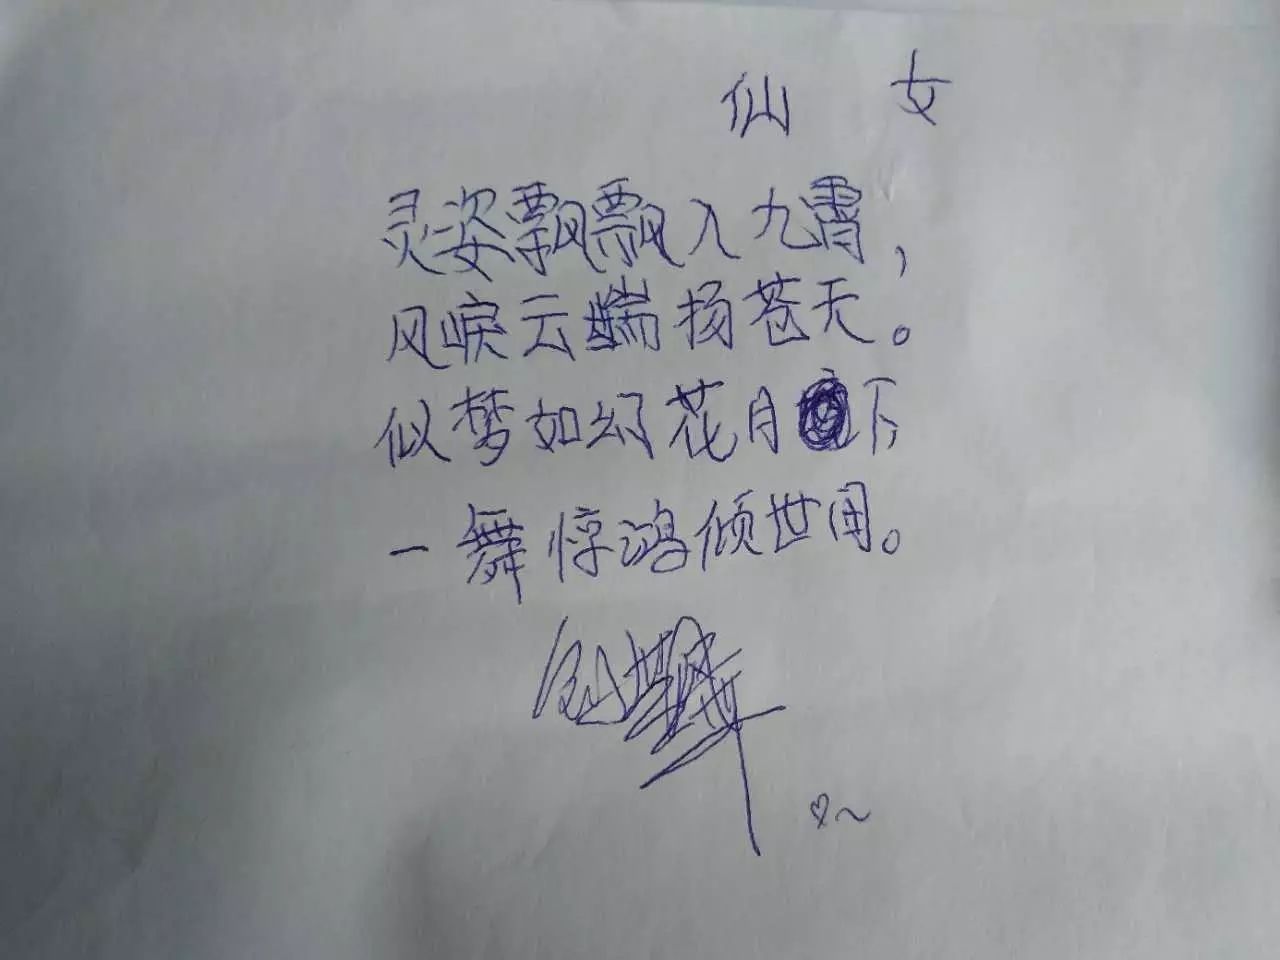 仙 女
灵姿飘飘入九霄，
风唳云端扬苍天。
似梦如幻花月下，
一舞惊鸿倾世间。
♡～